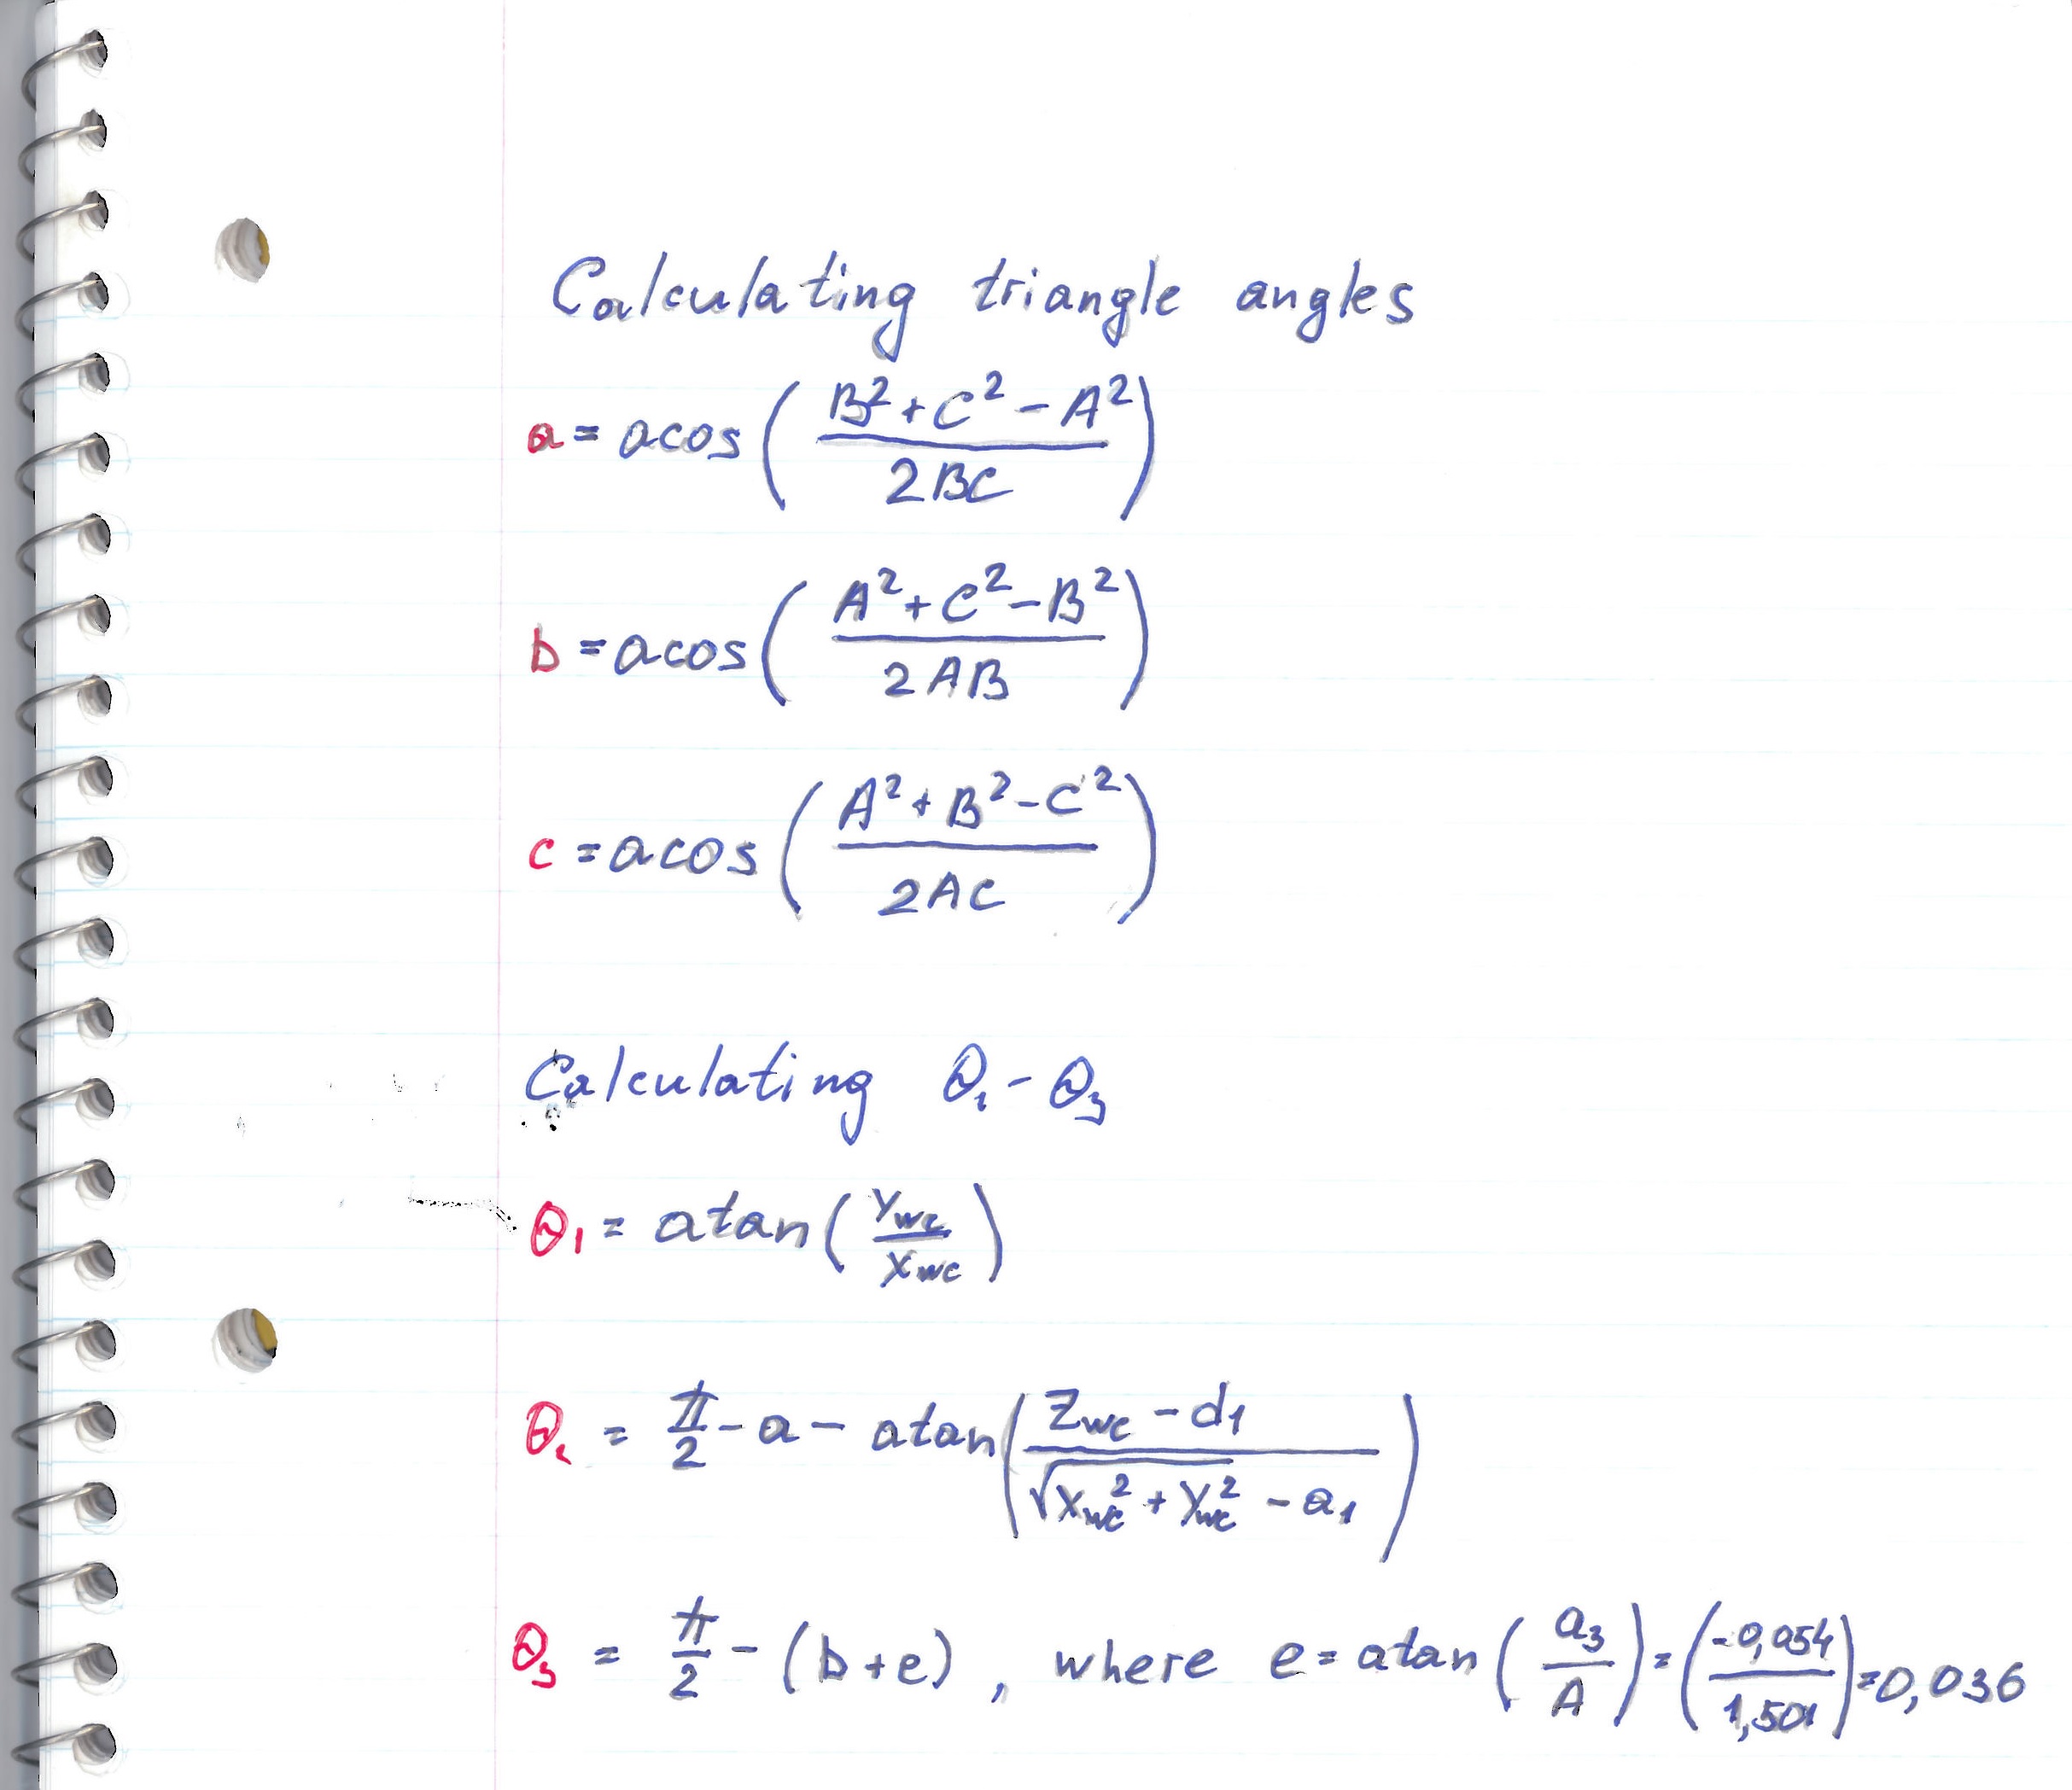 Calculating triangle angles
a = acos ( (B² + C² - A²) / 2BC )
b = acos ( (A² + C² - B²) / 2AB )
c = acos ( (A² + B² - C²) / 2AC )
Calculating θ₁ - θ₃
θ₁ = atan ( Ywc / Xwc )
θ₂ = π/2 - a - atan ( (Zwc - d₁) / (√(Xwc² + Ywc²) - a₁) )
θ₃ = π/2 - (b + e), where e = atan ( a₃ / A ) = ( -0,054 / 1,501 ) = 0,036